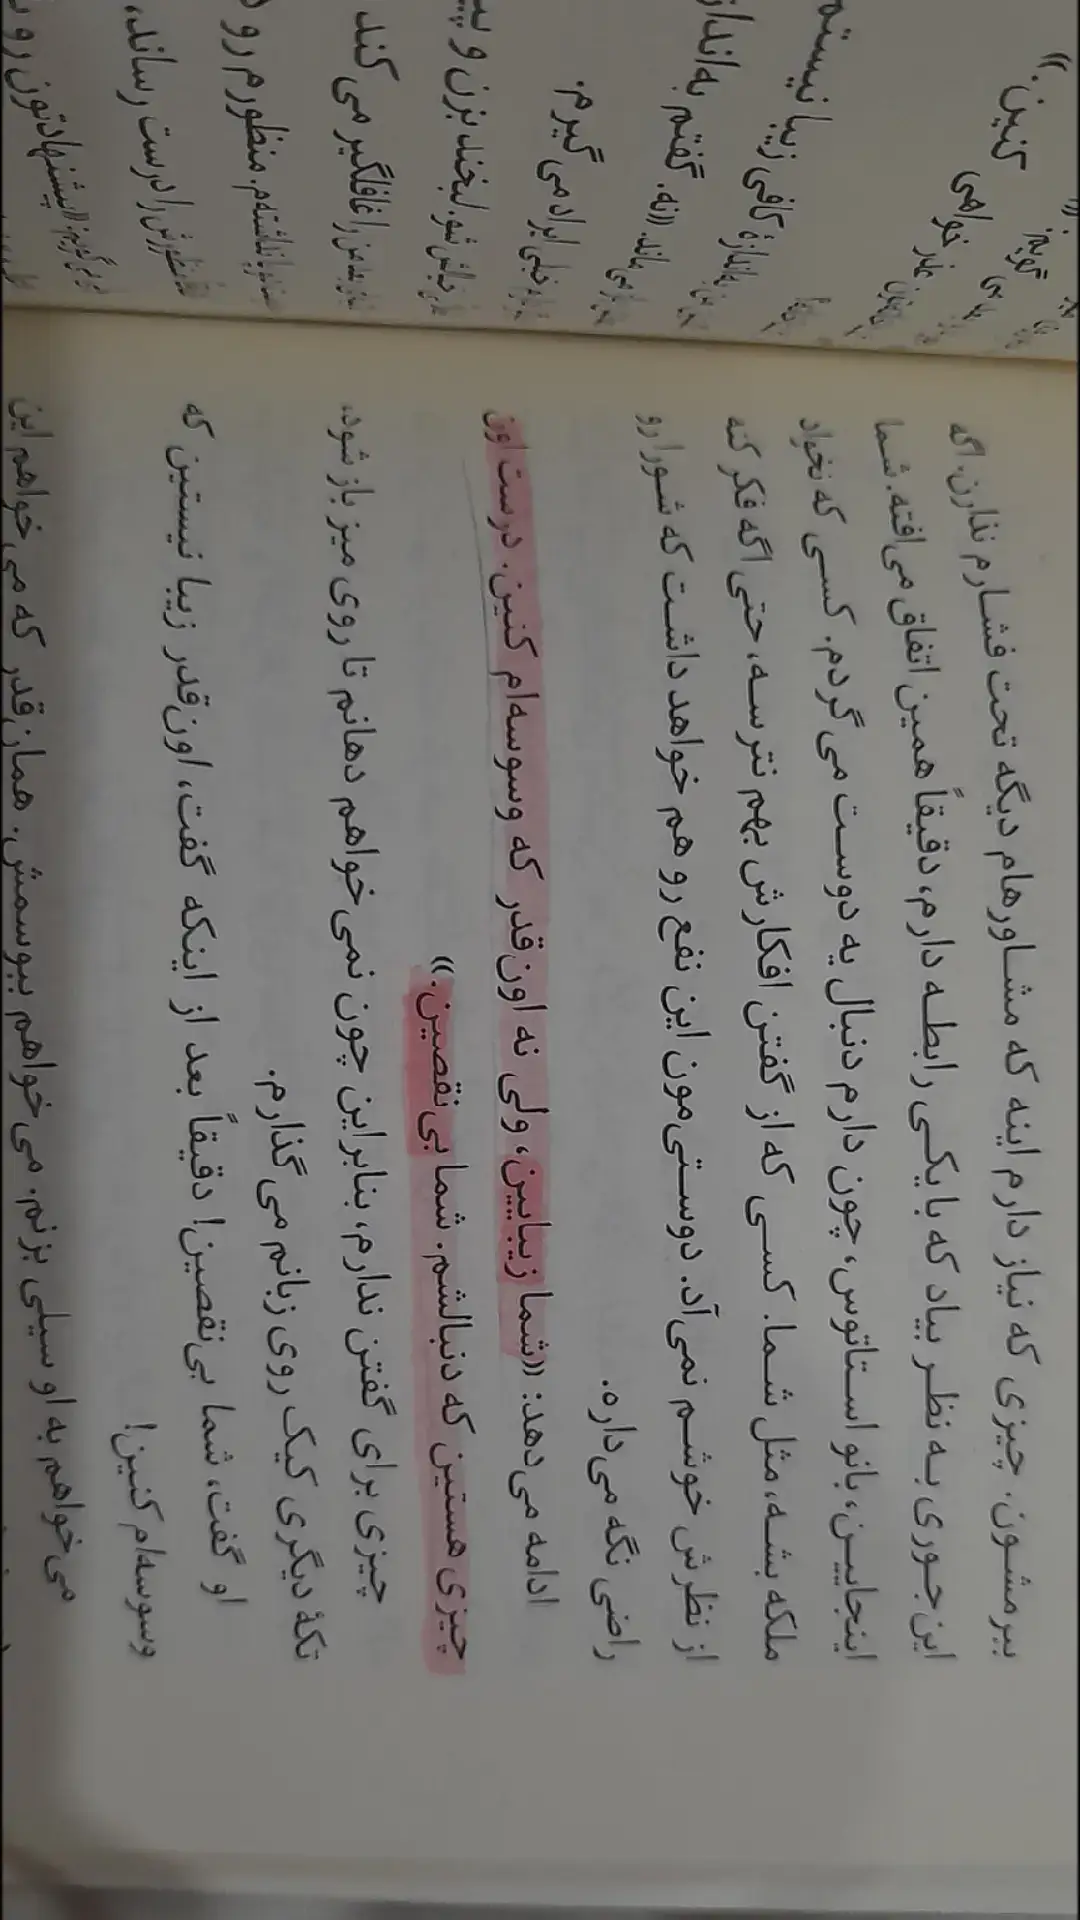 ببرمشون. چیزی که نیاز دارم اینه که مشاورهام دیگه تحت فشارم نذارن. اگه
این‌جوری به نظر بیاد که با یکی رابطه دارم، دقیقاً همین اتفاق می‌افته. شما
اینجایین، بانو استاتوس، چون دارم دنبال یه دوست می‌گردم. کسی که نخواد
ملکه بشه، مثل شما. کسی که از گفتن افکارش بهم نترسه، حتی اگه فکر کنه
از نظرش خوشم نمی‌آد. دوستی‌مون این نفع رو هم خواهد داشت که شورا رو
راضی نگه می‌داره.
ادامه می‌دهد: «شما زیبایین، ولی نه اون‌قدر که وسوسه‌ام کنین. درست اون
چیزی هستین که دنبالشم. شما بی‌نقصین.»
چیزی برای گفتن ندارم، بنابراین چون نمی‌خواهم دهانم تا روی میز باز شود،
تکهٔ دیگری کیک روی زبانم می‌گذارم.
او گفت، شما بی‌نقصین! دقیقاً بعد از اینکه گفت، اون‌قدر زیبا نیستین که
وسوسه‌ام کنین!
می‌خواهم به او سیلی بزنم. می‌خواهم ببوسمش. همان‌قدر که می‌خواهم این
کنین.»
خواهی
زیبا نیستم
کافی
«نه. گفتم به
می‌گیرم.
لبخند بزن و
غافلگیر می‌کند
منظورم رو
را درست رساند،